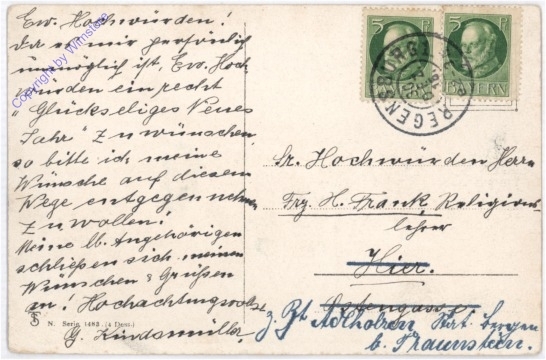 Ew. Hochwürden!
Da es mir persönlich
unmöglich ist, Ew. Hoch-
würden ein recht
"Glückseliges Neues
Jahr" zu wünschen,
so bitte ich meine
Wünsche auf diesem
Wege entgegennehmen
zu wollen!
Meine lb. Angehörigen
schließen sich meinen
Wünschen & Grüßen
an! Hochachtungsvollst
G. Kindsmüller
N. Serie 1483. (4 Dess.)
Copyright by Wimsten
5 Pf
5 Pf
BAYERN
REGENSBURG
Sr. Hochwürden Herrn
Frz. H. Frank Religions-
lehrer
Hier.
z. Zt Adlholzen Post Bergen
b. Traunstein.